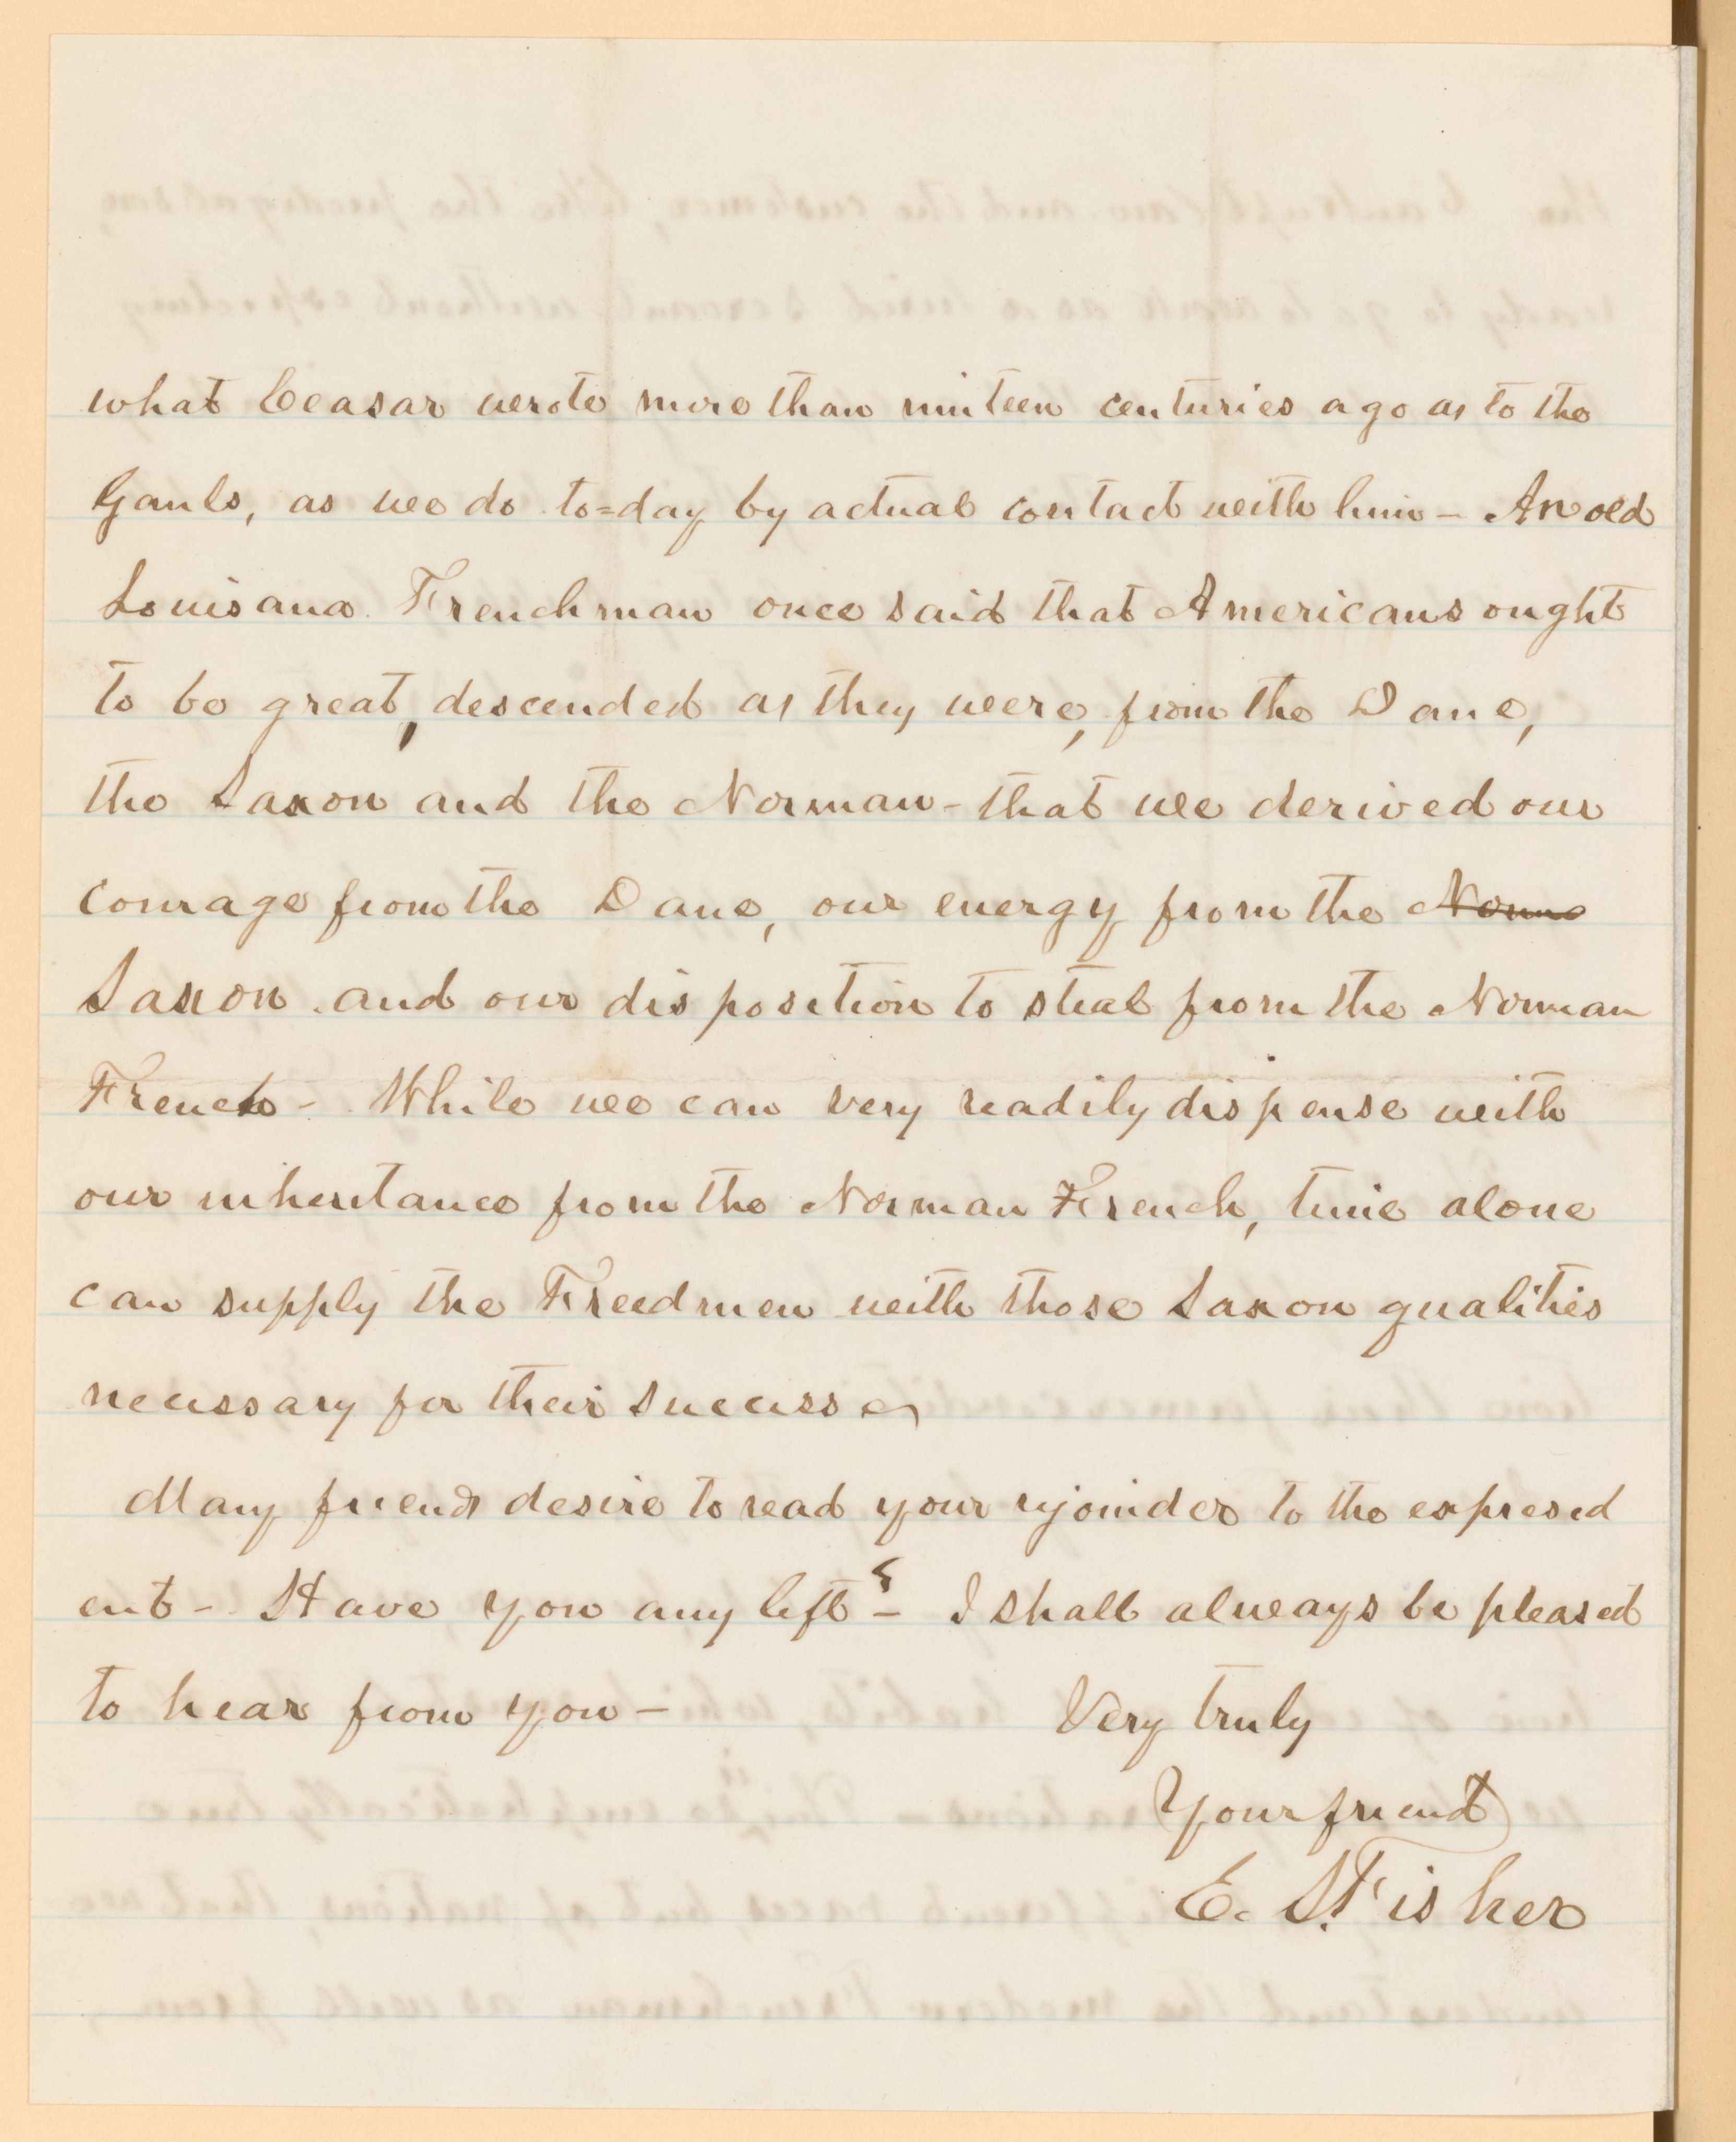 what Ceasar wrote more than ninteen centuries ago as to the
Gauls, as we do to=day by actual contact with him - An old
Louisana Frenchman once said that Americans ought
to be great, descended as they were, from the Dane,
the Saxon and the Norman - that we derived our
courage from the Dane, our energy from the Norma
Saxon and our disposition to steal from the Norman
French - While we can very readily dispense with
our inheritance from the Norman French, time alone
can supply the Freedmen with those Saxon qualities
necessary for their success
Many friends desire to read your rejoinder to the expresed
ent - Have you any left? - I shall always be pleased
to hear from you -
Very truly
Your friend
E. S. Fisher